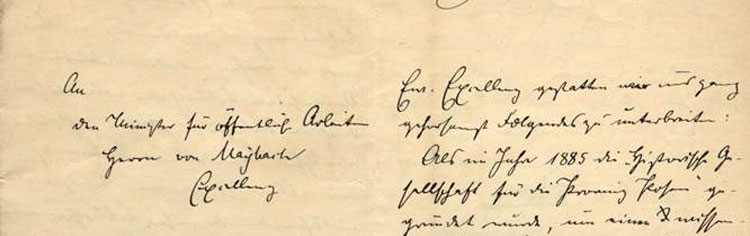 An
den Minister für öffentliche Arbeiten
Herrn von Maybach
Excellenz
Ew. Excellenz gestatten wir uns ganz
gehorsamst Folgendes zu unterbreiten:
Als im Jahre 1885 die „Historische Ge-
sellschaft für die Provinz Posen“ ge-
gründet wurde, um einen wissen-